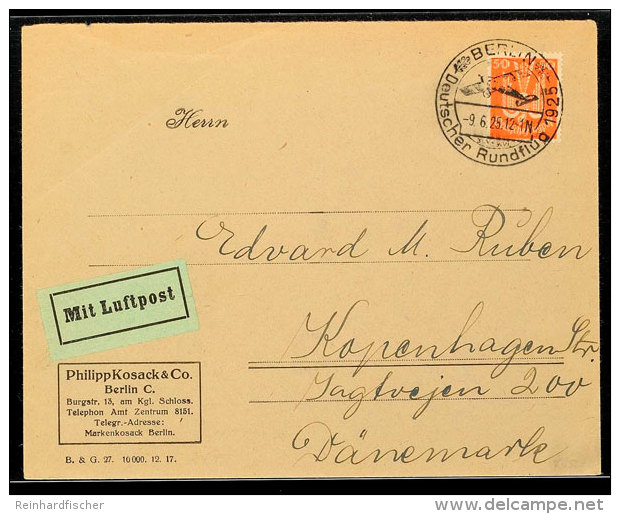 BERLIN
Deutscher Rundflug 1925
-9.6.25.12-1N
50
Herrn
Edvard M. Rüben
Kopenhagen Str.
Jagtvejen 200
Dänemark
Mit Luftpost
Philipp Kosack & Co.
Berlin C.
Burgstr. 13, am Kgl. Schloss.
Telephon Amt Zentrum 8151.
Telegr.-Adresse:
Markenkosack Berlin.
B. & G. 27. 10000. 12. 17.
Reinhardfischer
delcampe.net